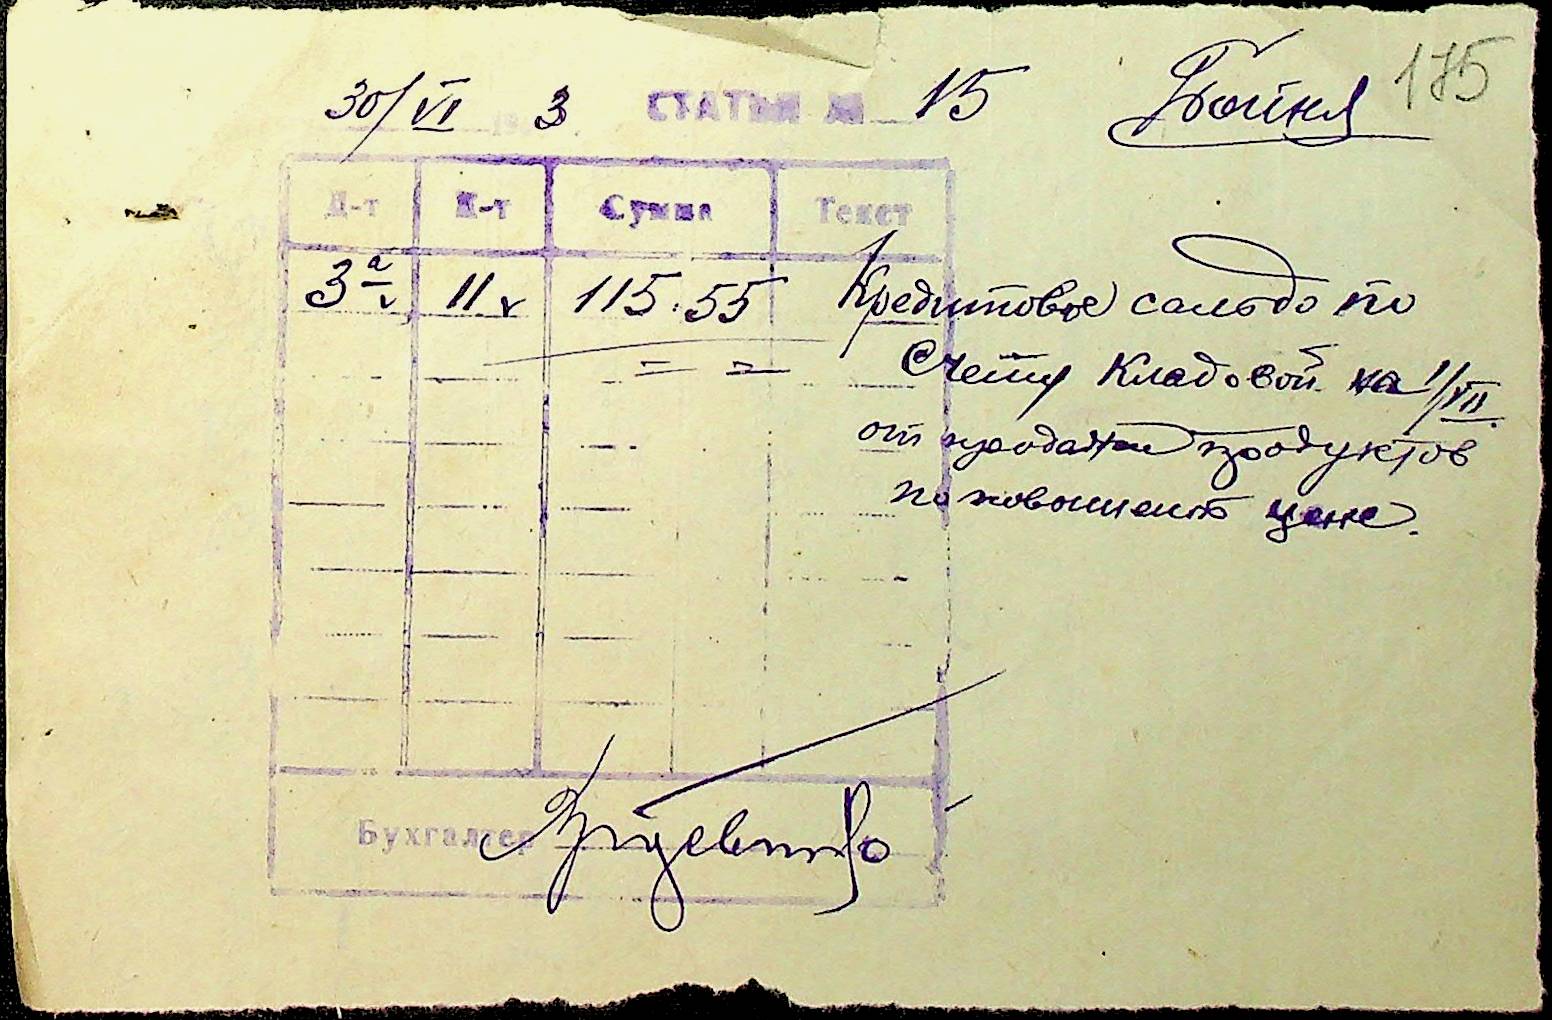 30/VI 193 СТАТЬЯ № 15 Бойня 175
Д-т К-т Сумма Текст
3а 11 115.55 Кредитовое сальдо по
счету Кладовой на 1/VII
от продажи продуктов
по повышенной цене.
Бухгалтер